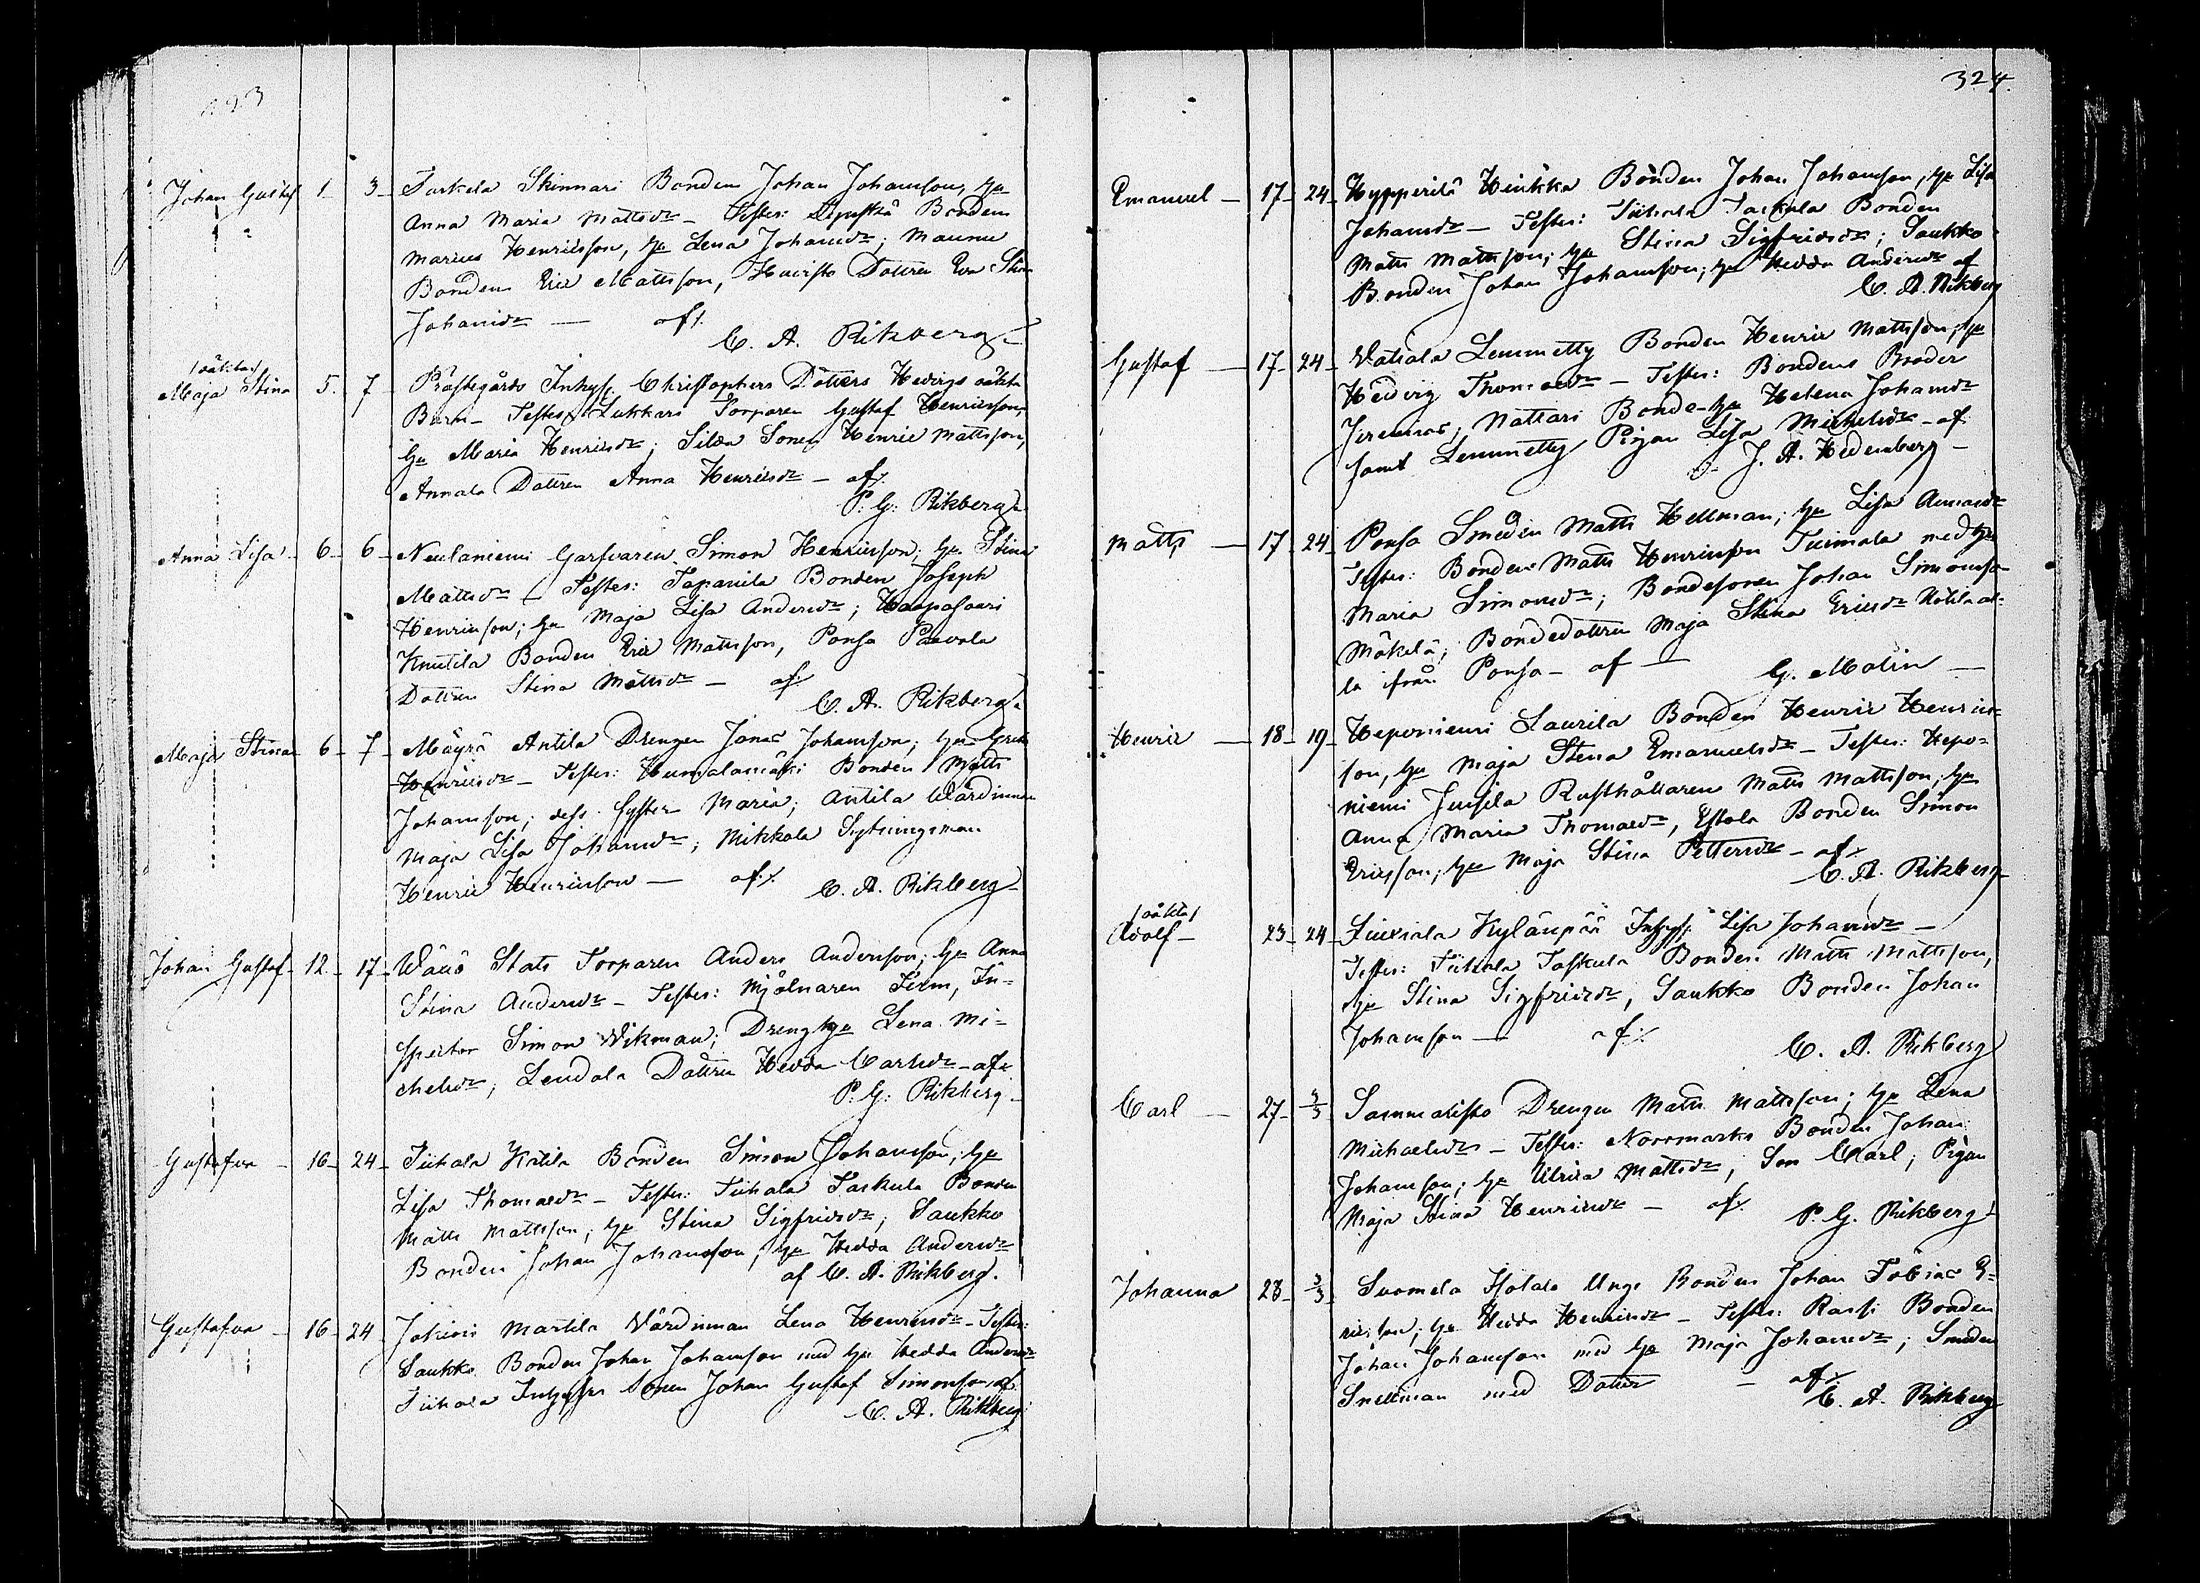 323
Johan Gustaf 1. 3. Tarkela Skinnari Bonden Johan Johansson, hu
Anna Maria Mattsdr – Testes: Bonden
Marius Henricsson, hu Lena Johansdr; Maunu
Bonden Eric Mattsson, Dottren Eva Stina
Johansdr — af
C. A. Rikberg
/oäkta/
Maja Stina 5. 7 Prästegårds Inhys. Christophers Dotters Hedvigs oäkta
Barn – Testes: Lukkari Torparen Gustaf Henricsson,
hu Maria Henricsdr; Sonen Henric Mattsson,
Annala Dottren Anna Henricsdr – af
P. G. Rikberg
Anna Lisa 6. 6 Neulaniemi Garfvaren Simon Henricsson, hu Stina
Mattsdr – Testes: Tapanila Bonden Joseph
Henricsson; hu Maja Lisa Andersdr; Haapasaari
Knutila Bonden Eric Mattsson, Ponsa Paavola
Dottren Stina Mattsdr – af
C. A. Rikberg
Maja Stina 6. 7. Mäyrä Antila Drengen Jonas Johansson, hu Greta
Henricsdr – Testes: Humalamäki Bonden Matts
Johansson, dess Syster Maria; Antila Wärdinnan
Maja Lisa Johansdr; Mikkola Sytningsman
Henric Henricsson — af
C. A. Rikberg
Johan Gustaf 12. 17. Stats Torparen Anders Andersson, hu Anna
Stina Andersdr – Testes: Mjölnaren Firm, In-
spector Simon Wikman; Dreng hu Lena Mi-
chelsdr; Lendala Dottren Hedda Carlsdr – af
P. G. Rikberg
Gustafva – 16. 24. Tiihala Kätilä Bonden Simon Johansson, hu
Lisa Thomasdr – Testes: Tiihala Taskula Bonden
Matts Mattsson, hu Stina Sigfridsdr; Saukko
Bonden Johan Johansson, hu Hedda Andersdr
af C. A. Rikberg.
Gustafva – 16. 24 Jokiois Martila Värdinnan Lena Henricsdr – Testes:
Saukko Bonden Johan Johansson med hu Hedda Andersdr
Tiihala Inhyses Sonen Johan Gustaf Simonsson af
C. A. Rikberg
324.
Emanuel – 17. 24. Hypperilä Heikka Bonden Johan Johansson, hu Lisa
Johansdr – Testes: Tiihala Taskula Bonden
Matts Mattsson; hu Stina Sigfridsdr; Saukko
Bonden Johan Johansson; hu Hedda Andersdr af
C. A. Rikberg
Gustaf – 17. 24. Vatiala Lemmetty Bonden Henric Mattsson, hu
Hedvig Thomasdr – Testes: Bondens Broder
Jeremias; Nattari Bonde-hu Helena Johansdr
samt Lemmetty Pigan Lisa Michelsdr – af
J. A. Hedenberg –
Matts – 17. 24. Ponsa Smeden Matts Hellman; hu Lisa
Testes: Bonden Matts Henricsson Tuimala med hu
Maria Simonsdr; Bondesonen Johan Simonsson
Mäkelä; Bondedottren Maja Stina Ericsdr
la ifrån Ponsa – af — G. Molin –
Henric – 18. 19. Heponiemi Laurila Bonden Henric Henrics-
son, hu Maja Stina Emanuelsdr – Testes: Hepo-
niemi Jussila Rusthållaren Matts Mattsson, hu
Anna Maria Thomasdr, Eskola Bonden Simon
Ericsson, hu Maja Stina Pettersdr – af
C. A. Rikberg
/oäkta/
Adolf – 23. 24. Liuksiala Kylänpää Inhys: Lisa Johansdr –
Testes: Tiihala Taskula Bonden Matts Mattsson,
hu Stina Sigfridsdr, Saukko Bonden Johan
Johansson — af
C. A. Rikberg
Carl – 27. 3/3. Sammalisto Drengen Matts Mattsson; hu Lena
Michaelsdr – Testes: Norrmarks Bonden Johan
Johansson; hu Ulrica Mattsdr, Son Carl; Pigan
Maja Stina Henricsdr – af
P. G. Rikberg
Johanna 28. 3/3. Suomela Isotalo Unge Bonden Johan Tobias E-
ricsson, hu Hedda Henricsdr – Testes: Rassi Bonden
Johan Johansson med hu Maja Johansdr; Smeden
Snellman med Dotter – af
C. A. Rikberg